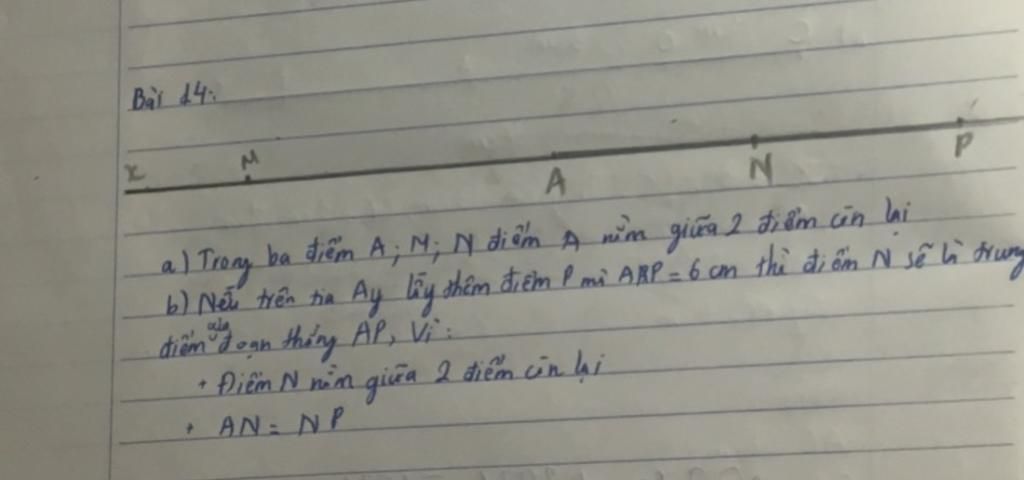 Bài 14:
x M A N P
a) Trong ba điểm A; M; N điểm A nằm giữa 2 điểm còn lại
b) Nếu trên tia Ay lấy thêm điểm P mà AP = 6 cm thì điểm N sẽ là trung
điểm của đoạn thẳng AP, Vì:
+ Điểm N nằm giữa 2 điểm còn lại
+ AN = NP